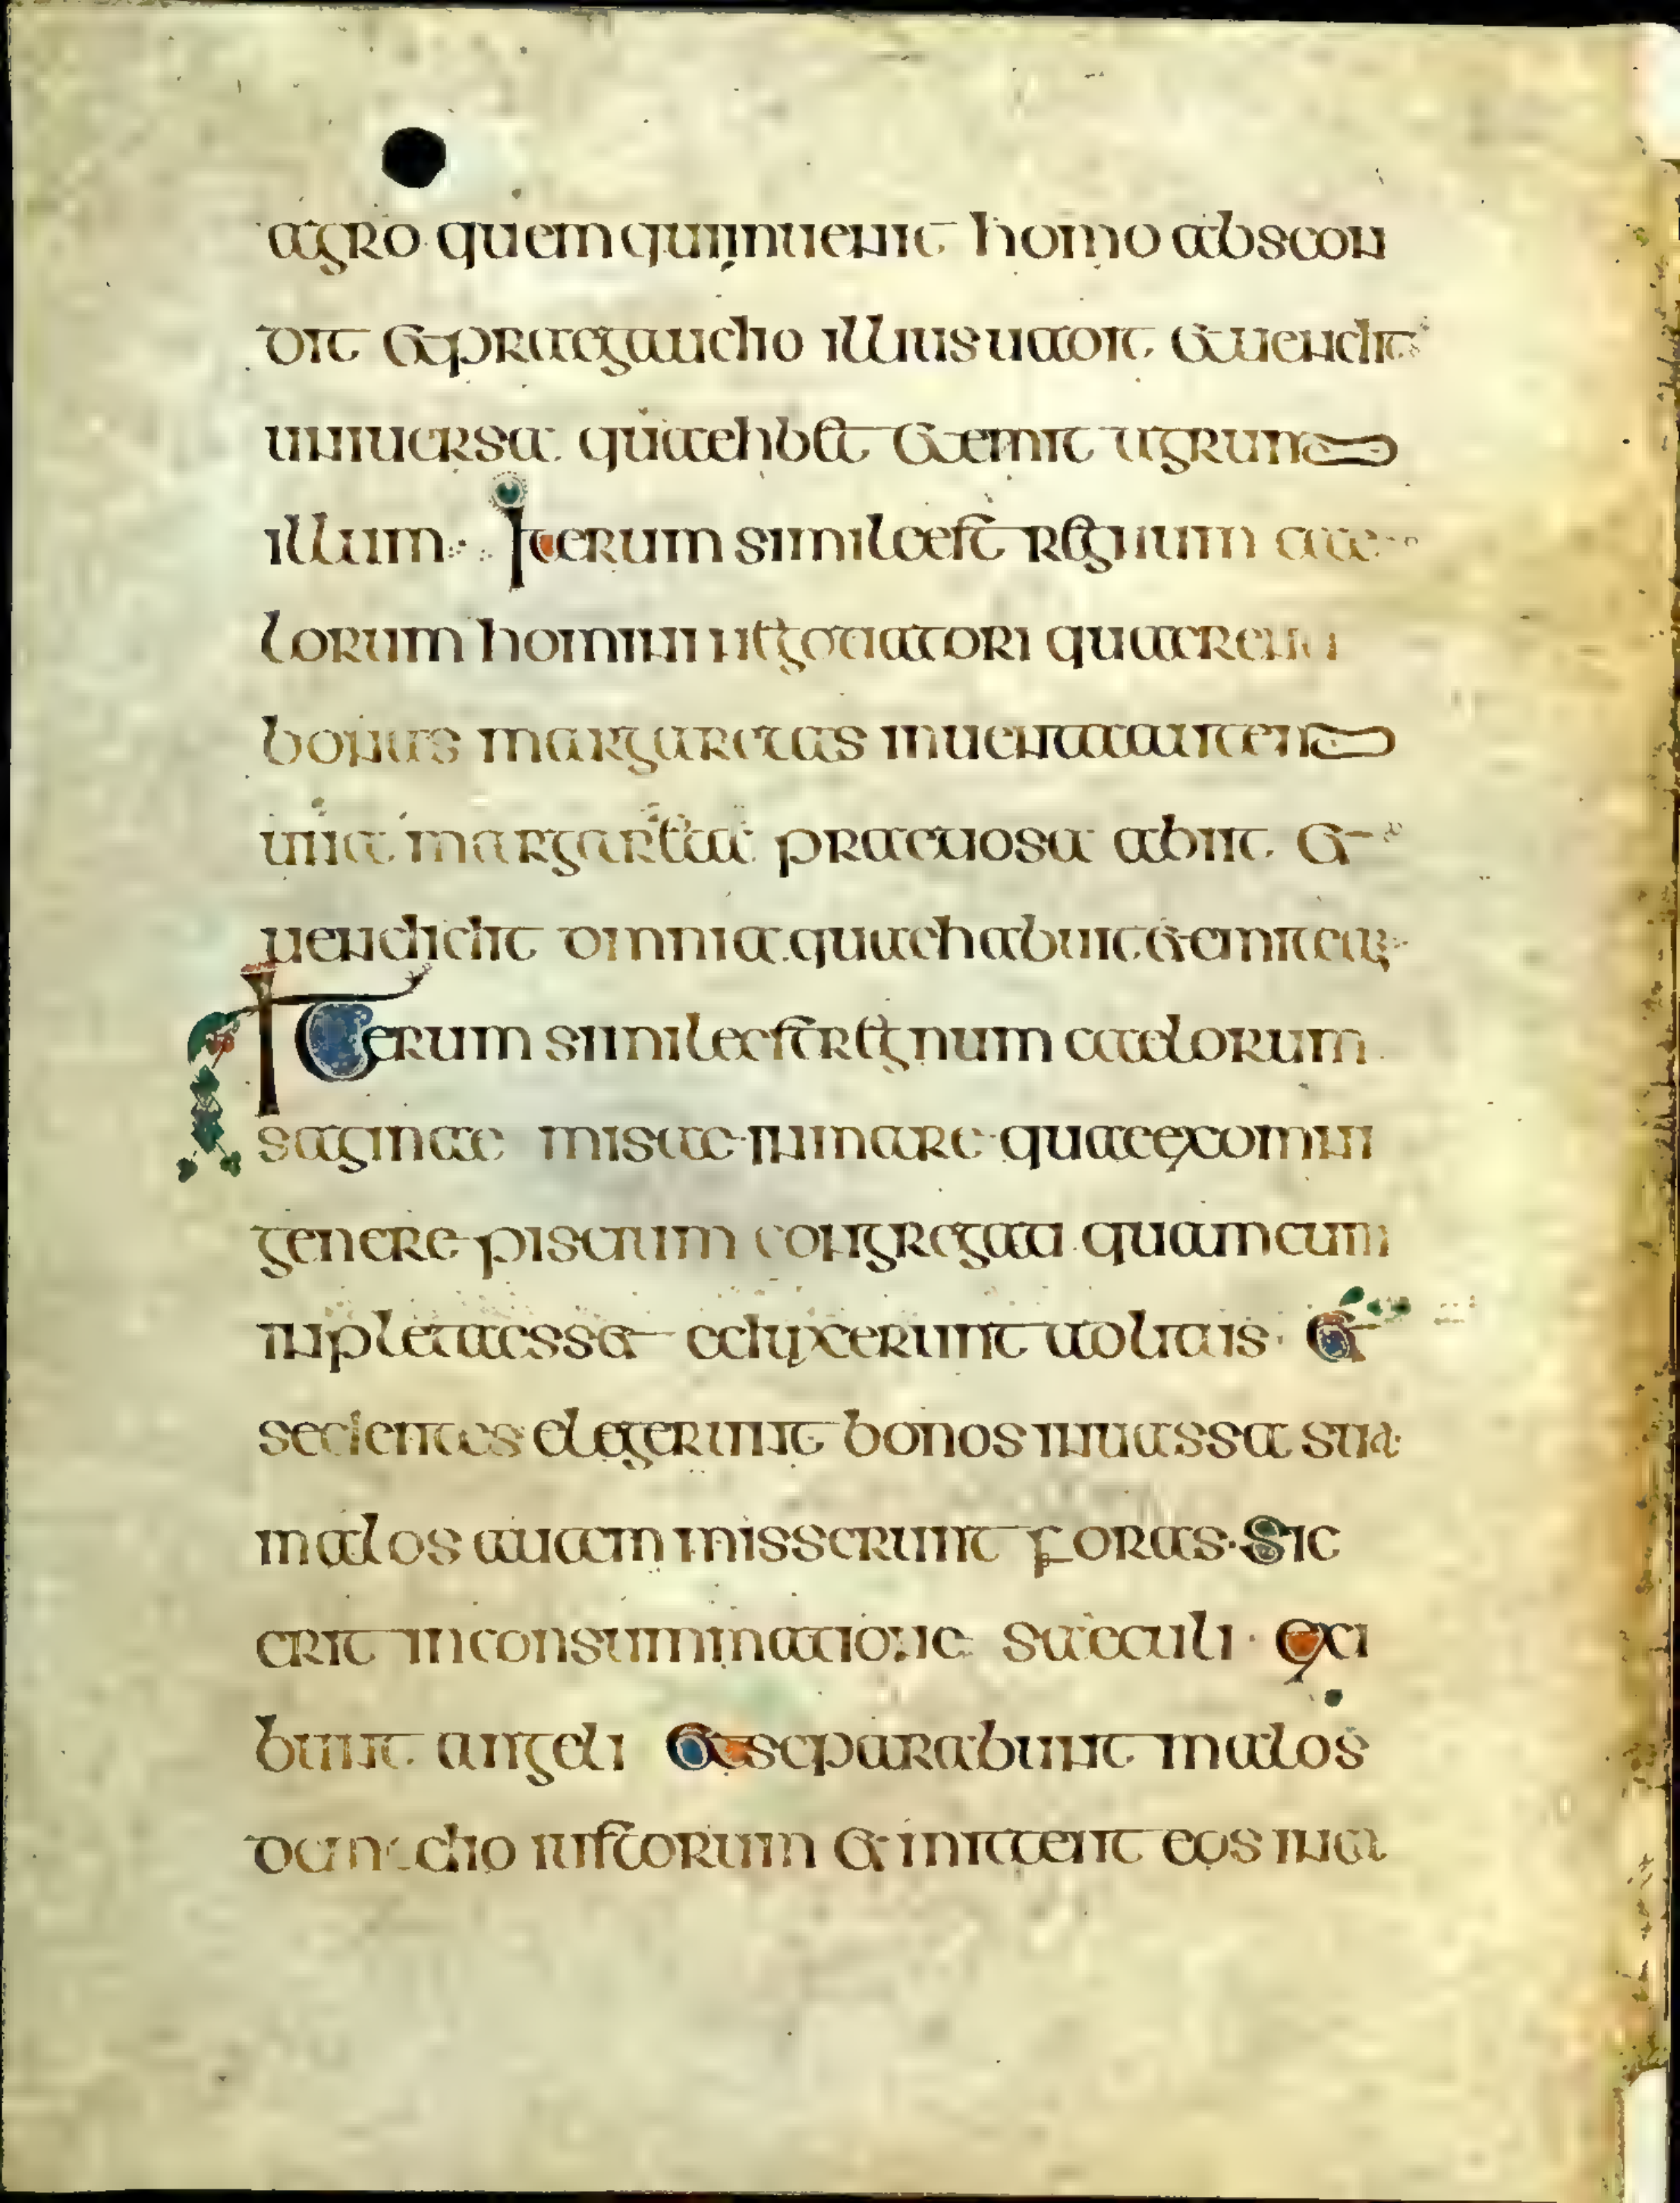 agro quem qui inuenit homo abscon
dit et prae gaudio illius uadit et uendit
uniuersa quae habet et emit agrum
illum Iterum simile est regnum cae
lorum homini negotiatori quaerenti
bonas margaretas inuenta autem
una margarita praetiosa abiit et
uendidit omnia quae habuit et emit eam
Iterum simile est regnum caelorum
saginae misae in mare quae ex omni
genere piscium congregati quam cum
inpleta esset educxerunt
sedentes elegerunt bonos in uassa sua
malos autem misserunt foras Sic
erit in consummatione saeculi exi
bunt angeli et separabunt malos
de medio iustorum et mittent eos in ca